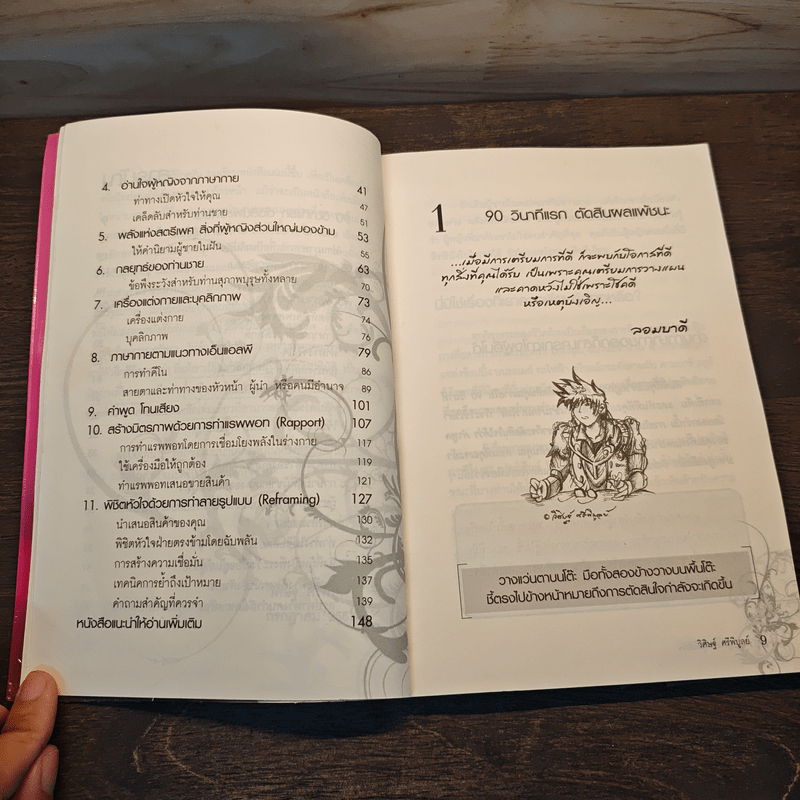 4. อ่านใจผู้หญิงจากภาษากาย 41
ท่าทางเปิดหัวใจให้คุณ 47
เคล็ดลับสำหรับท่านชาย 51
5. พลังแห่งสตรีเพศ สิ่งที่ผู้หญิงส่วนใหญ่มองข้าม 53
ให้คำนิยามผู้ชายในฝัน 55
6. กลยุทธ์ของท่านชาย 63
ข้อพึงระวังสำหรับท่านสุภาพบุรุษทั้งหลาย 70
7. เครื่องแต่งกายและบุคลิกภาพ 73
เครื่องแต่งกาย 74
บุคลิกภาพ 76
8. ภาษากายตามแนวทางเอ็นแอลพี 79
การทำคีโน 86
สายตาและท่าทางของหัวหน้า ผู้นำ หรือคนมีอำนาจ 89
9. คำพูด โทนเสียง 101
10. สร้างมิตรภาพด้วยการทำแรพพอท (Rapport) 107
การทำแรพพอทโดยการเชื่อมโยงพลังในร่างกาย 117
ใช้เครื่องมือให้ถูกต้อง 119
ทำแรพพอทเสนอขายสินค้า 121
11. พิชิตหัวใจด้วยการทำลายรูปแบบ (Reframing) 127
นำเสนอสินค้าของคุณ 130
พิชิตหัวใจฝ่ายตรงข้ามโดยฉับพลัน 132
การสร้างความเชื่อมั่น 135
เทคนิคการย้ำถึงเป้าหมาย 137
คำถามสำคัญที่ควรจำ 139
หนังสือแนะนำให้อ่านเพิ่มเติม 148
1 90 วินาทีแรก ตัดสินผลแพ้ชนะ
...เมื่อมีการเตรียมการที่ดี ก็จะพบกับโอกาสที่ดี
ทุกสิ่งที่คุณได้รับ เป็นเพราะคุณเตรียมการวางแผน
และคาดหวังไม่ใช่เพราะโชคดี
หรือเหตุบังเอิญ...
ลอมบาดี
© วิศิษฐ์ ศรีพิบูลย์
วางแว่นตาบนโต๊ะ มือทั้งสองข้างวางบนพื้นโต๊ะ
ชี้ตรงไปข้างหน้าหมายถึงการตัดสินใจกำลังจะเกิดขึ้น
วิศิษฐ์ ศรีพิบูลย์ 9